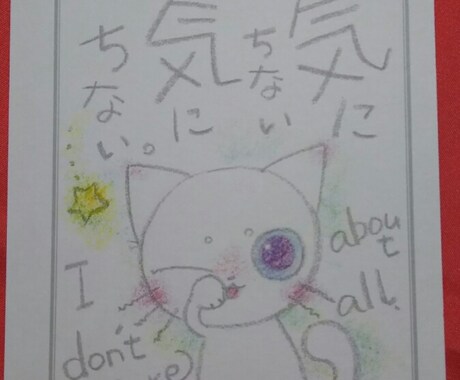 気に
ちない
気に
ちない。
I
don't
about
all.